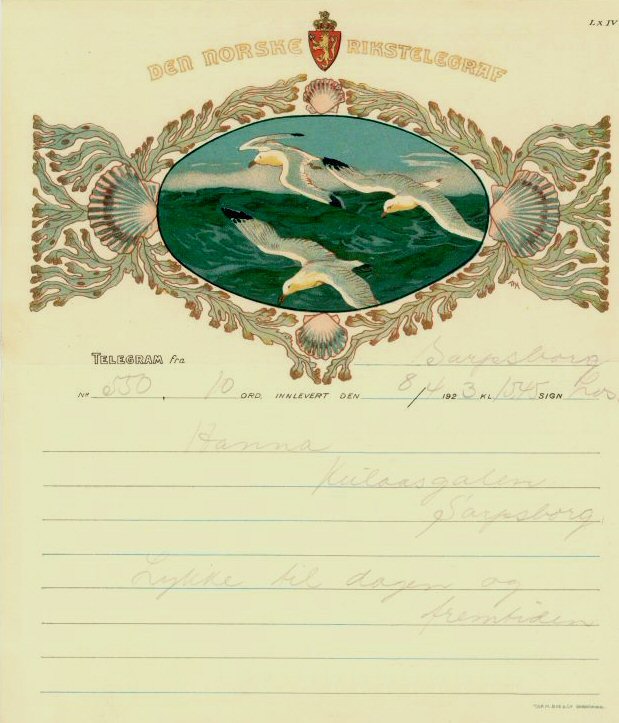 Lx IV
DEN NORSKE RIKSTELEGRAF
TELEGRAM fra Sarpsborg
Nº 550, 10 ORD, INNLEVERT DEN 8/4 1923 KL. 1545 SIGN
Hanna
Kulaasgaten
Sarpsborg
Lykke til dagen og
fremtiden